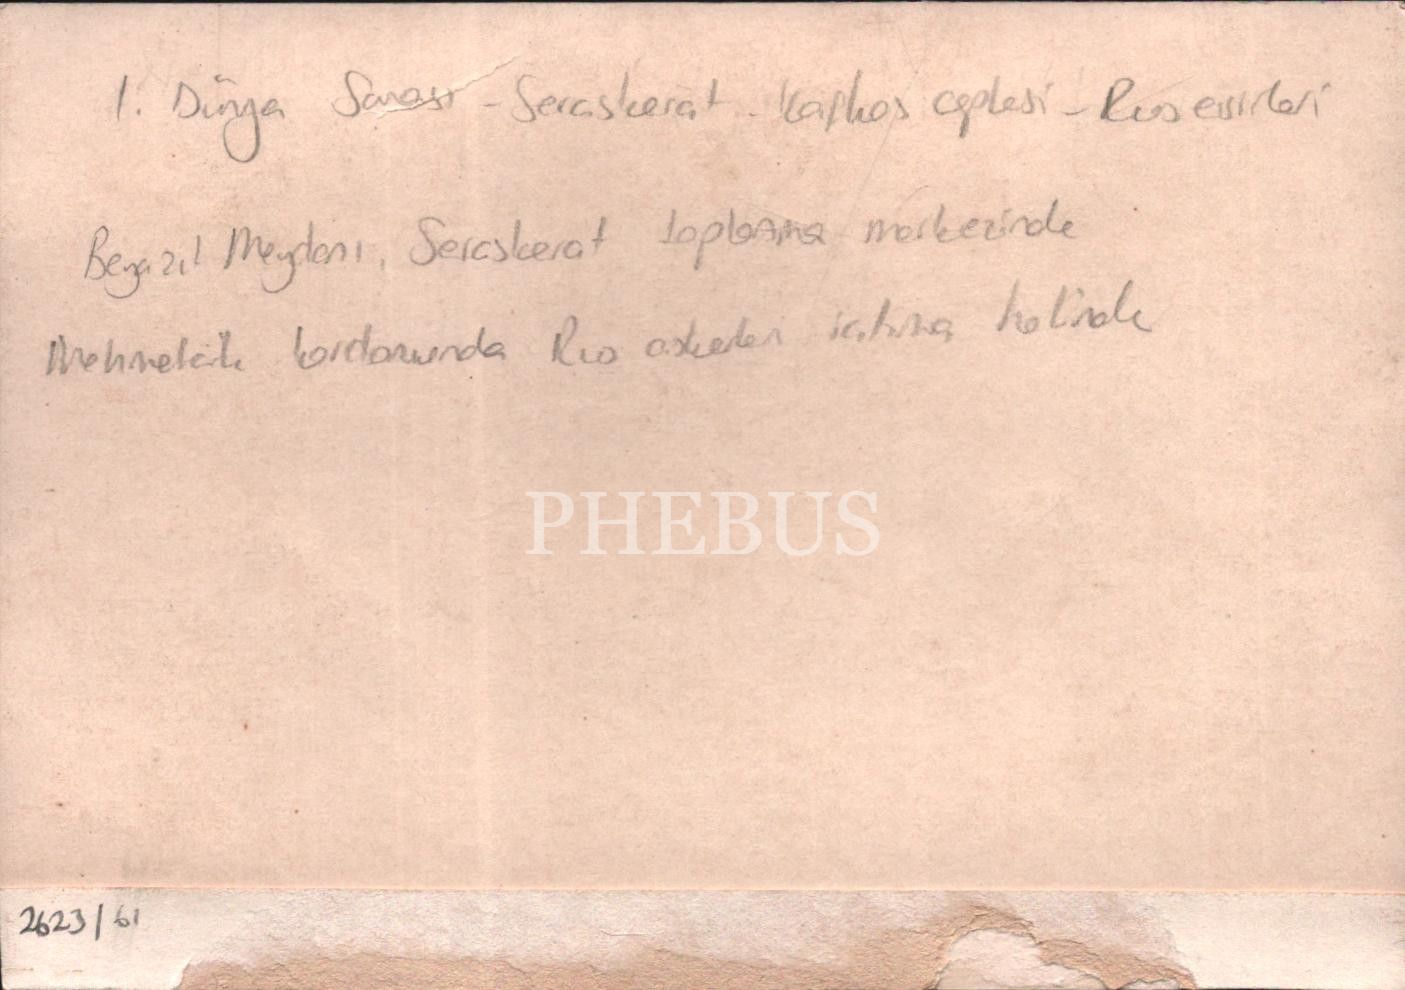 1. Dünya Savaşı - Seraskerat - Kafkas cephesi - Rus esirleri
Beyazıt Meydanı, Seraskerat toplanma merkezinde
Mehmetcik kordonunda Rus askerleri içtima halinde
PHEBUS
2623/61